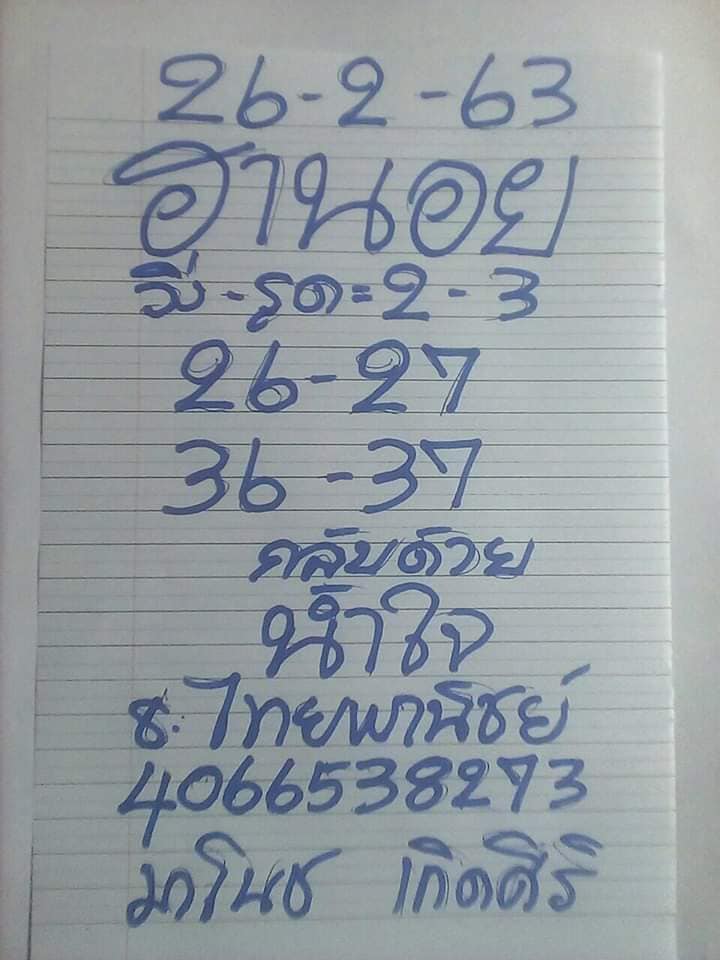 26-2-63
ฮานอย
วิ่ง-รูด=2-3
26-27
36-37
กลับด้วย
น้ำใจ
ธ.ไทยพานิชย์
4066538273
มาโนช เกิดศีริ